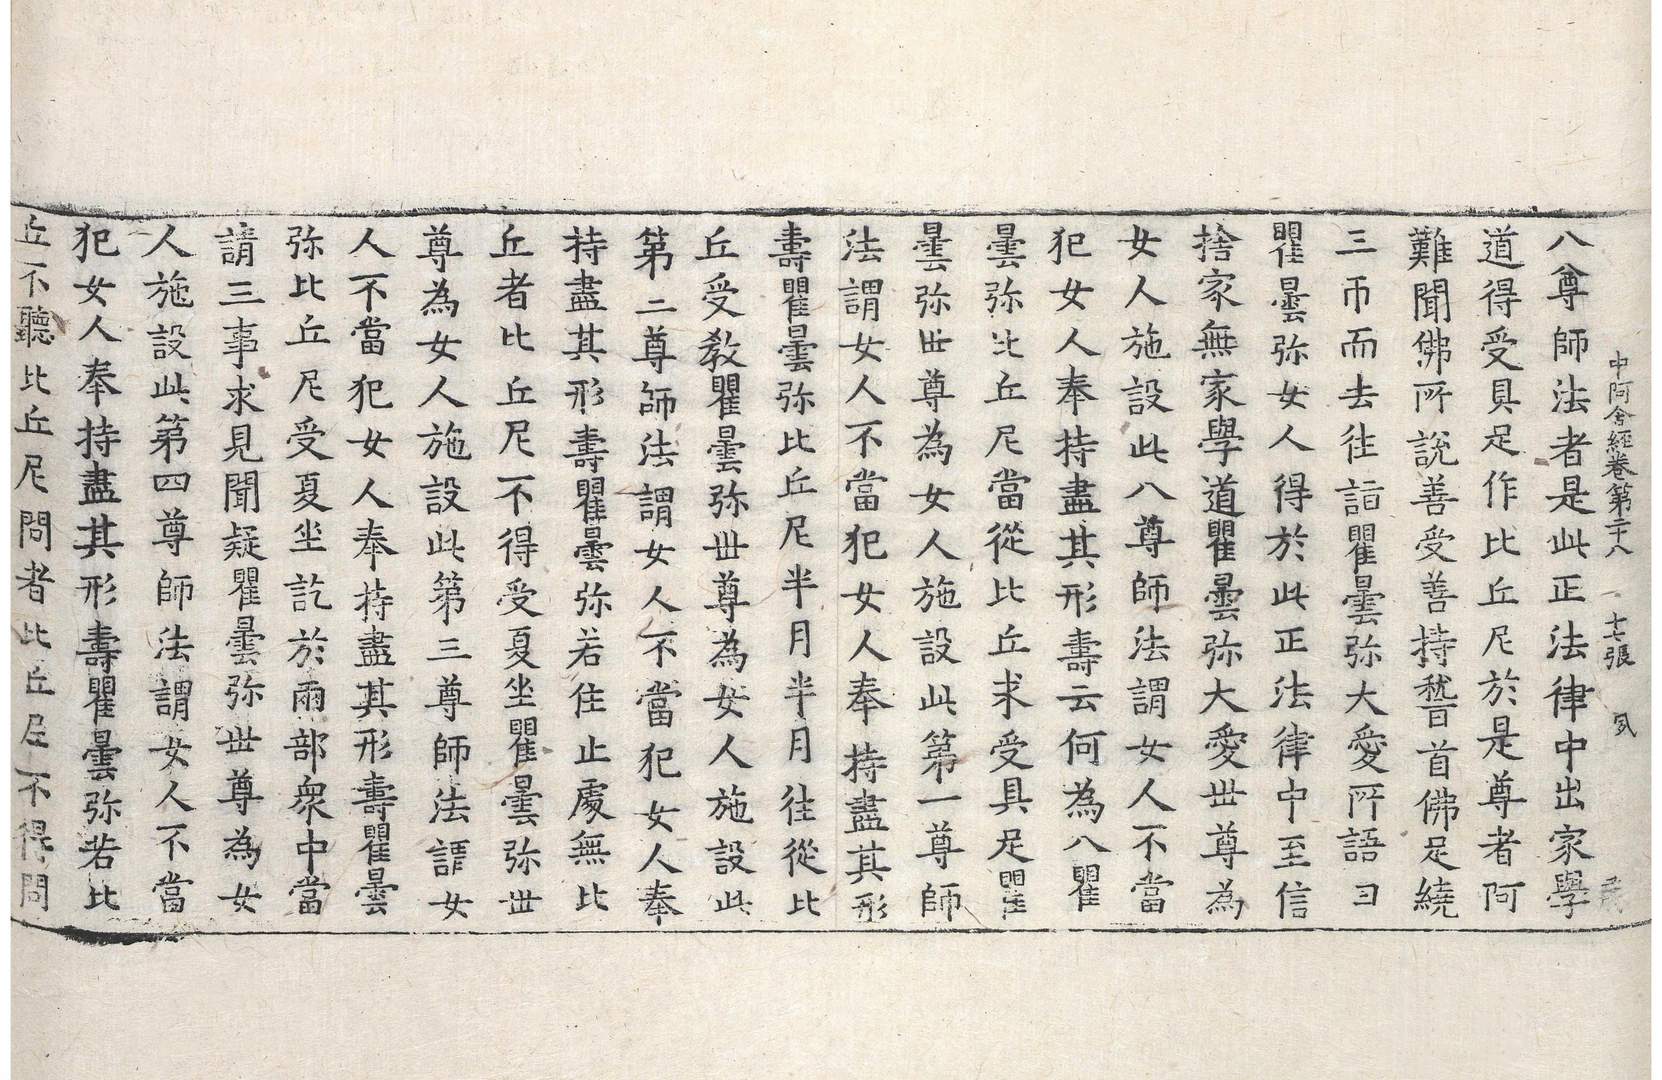 中阿含經卷第二十八 十七張
八尊師法者是此正法律中出家學
道得受具足作比丘尼於是尊者阿
難聞佛所說善受善持稽首佛足繞
三帀而去往詣瞿曇弥大愛所語曰
瞿曇弥女人得於此正法律中至信
捨家無家學道瞿曇弥大愛世尊為
女人施設此八尊師法謂女人不當
犯女人奉持盡其形壽云何為八瞿
曇弥比丘尼當從比丘求受具足瞿
曇弥世尊為女人施設此第一尊師
法謂女人不當犯女人奉持盡其形
壽瞿曇弥比丘尼半月半月往從比
丘受教瞿曇弥世尊為女人施設此
第二尊師法謂女人不當犯女人奉
持盡其形壽瞿曇弥若住止處無比
丘者比丘尼不得受夏坐瞿曇弥世
尊為女人施設此第三尊師法謂女
人不當犯女人奉持盡其形壽瞿曇
弥比丘尼受夏坐訖於兩部衆中當
請三事求見聞疑瞿曇弥世尊為女
人施設此第四尊師法謂女人不當
犯女人奉持盡其形壽瞿曇弥若比
丘不聽比丘尼問者比丘尼不得問